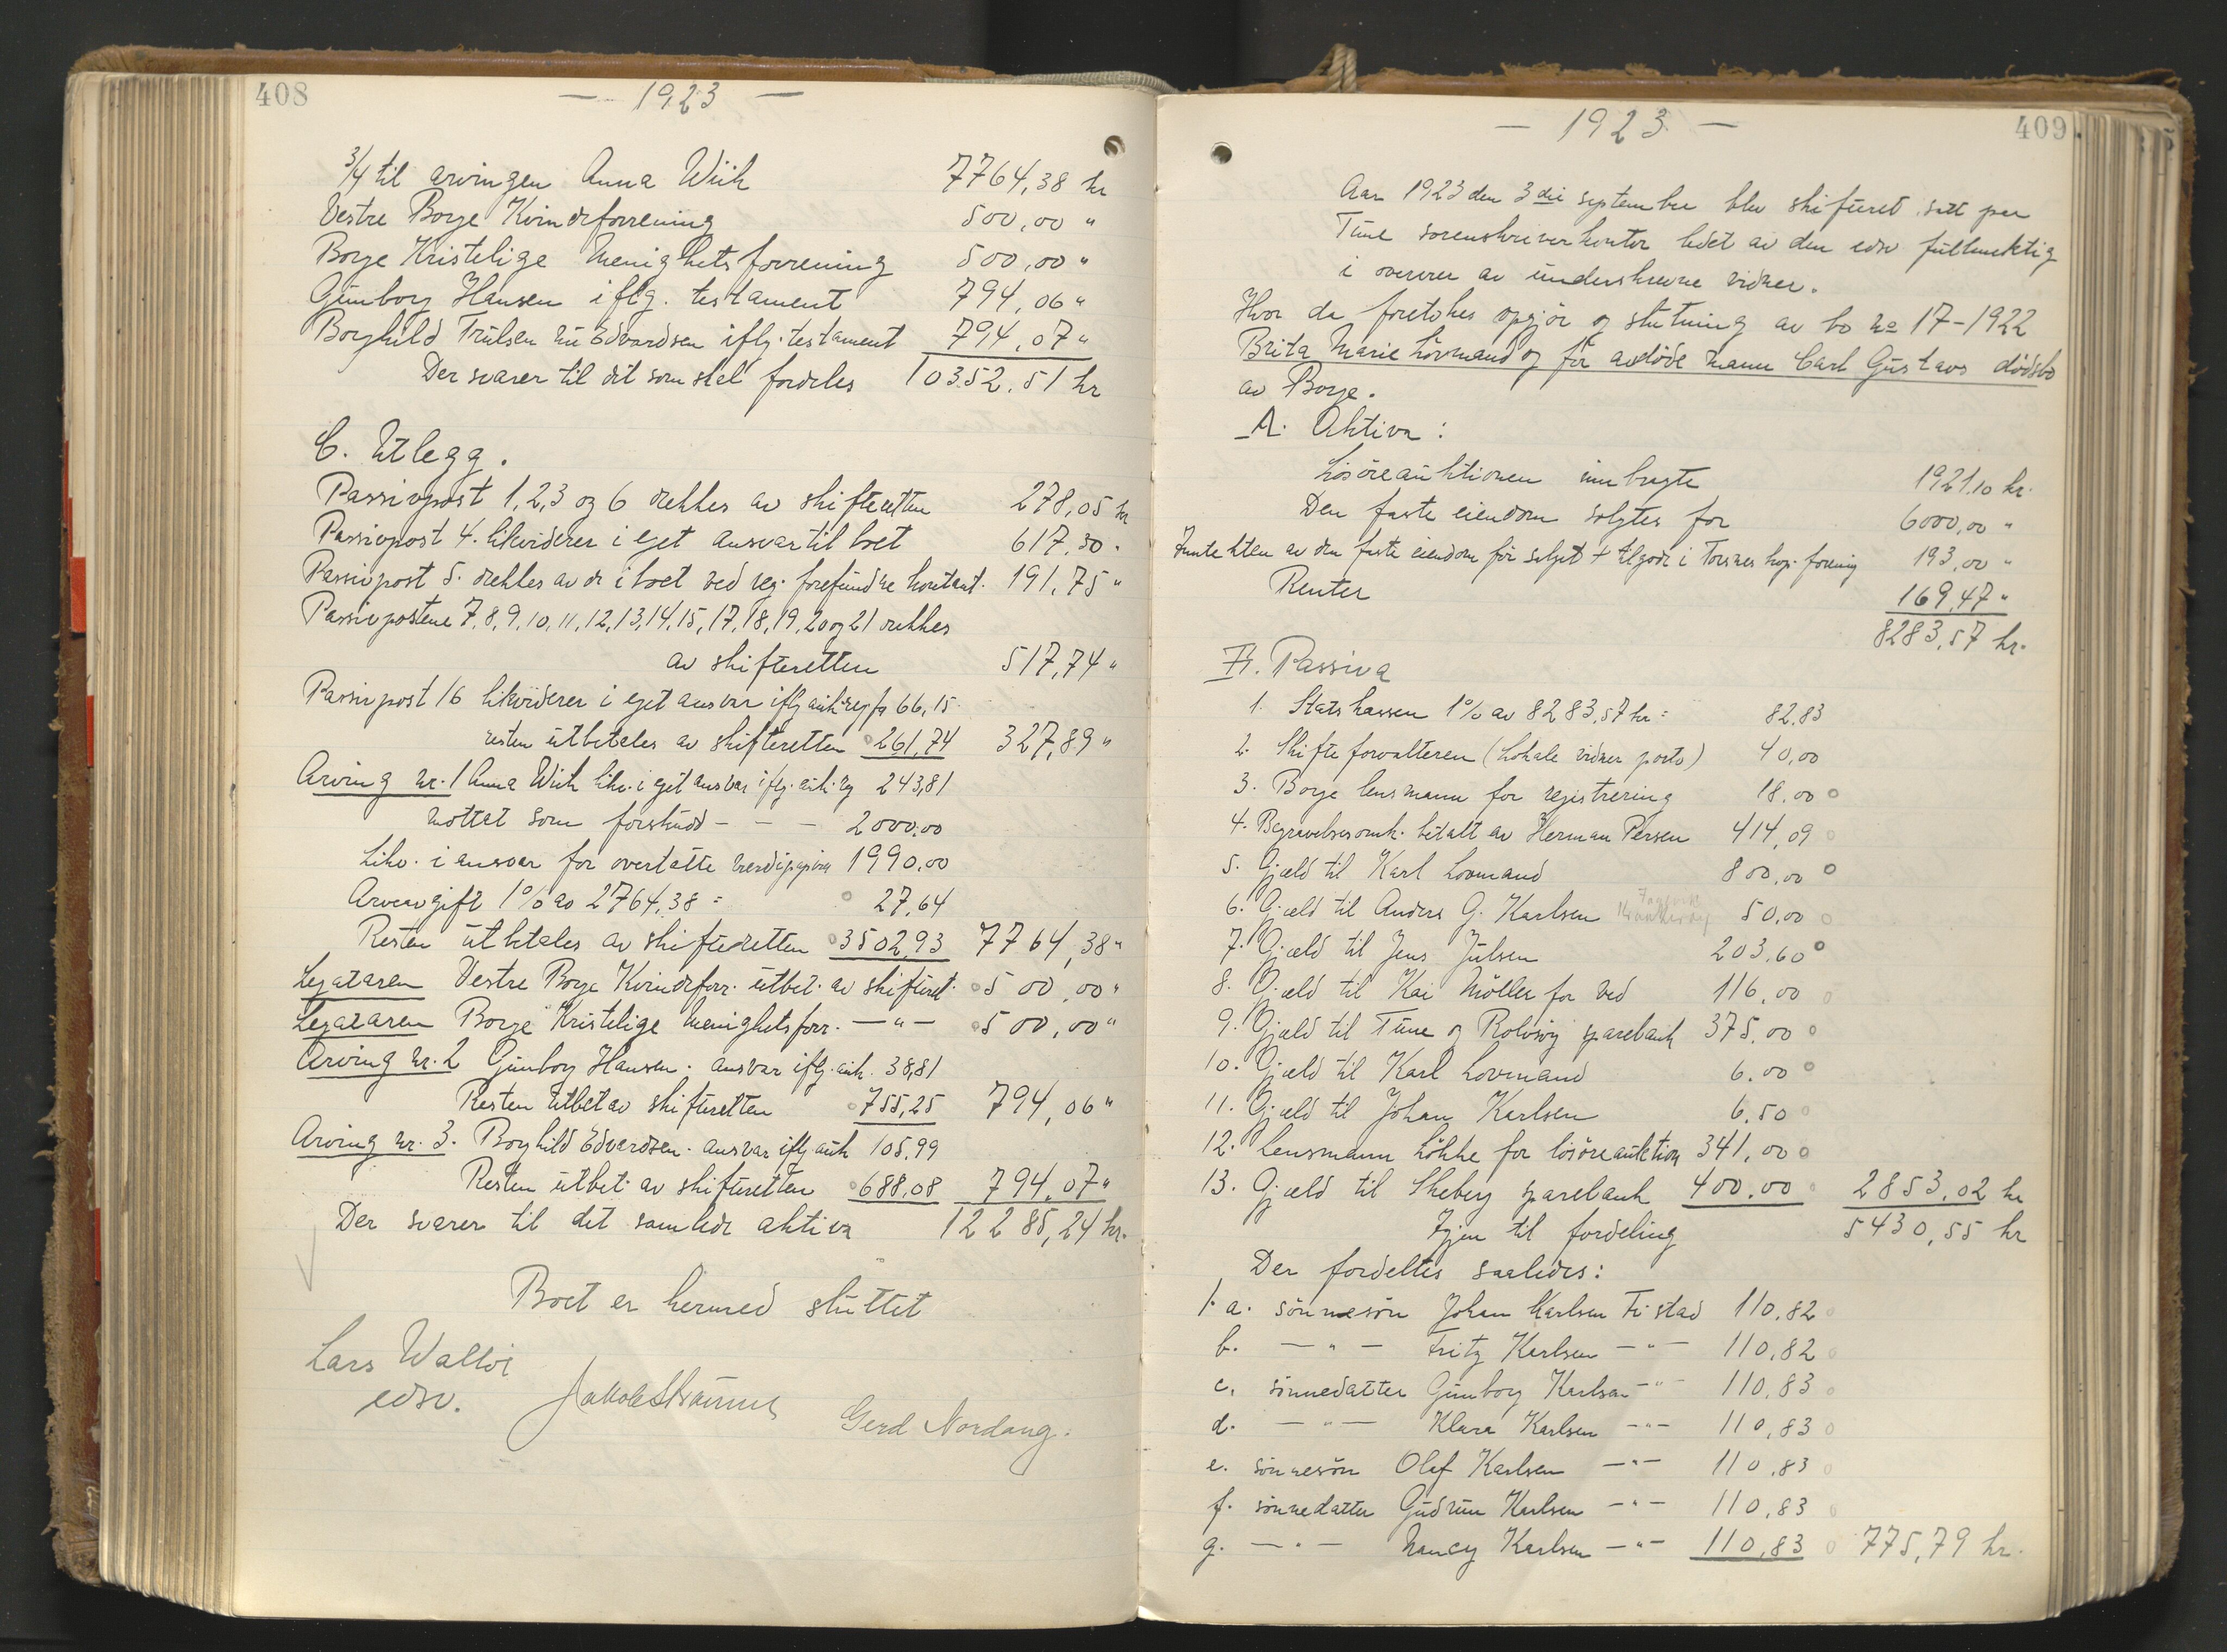 408
— 1923 —
3/4 til arvingen Anna Wiik 7764,38 kr
Vestre Borge Kvindeforrening 500,00 "
Borge Kristelige Menighetsforrening 500,00 "
Gunborg Hansen iflg. testament 794,06 "
Borghild Trulsen nu Edvardsen iflg. testament 794,07 "
Der svarer til det som skal fordeles 10352.51 kr
C. Utlegg.
Passivpost 1,2,3 og 6 dekkes av skifteretten 278,05 kr
Passivpost 4. likviderer i eget ansvar til boet 617,30 "
Passivpost 5. dekkes av de i boet ved reg. forefundne kontant. 191,75 "
Passivpostene 7,8,9,10,11,12,13,14,15,17,18,19,20 og 21 dekkes
av skifteretten 517,74 "
Passivpost 16 likviderer i eget ansvar iflg auk.reg fr 66,15
resten utbetales av skifteretten 261,74 327,89 "
Arving nr. 1 Anna Wiik likv. i eget ansvar iflg. auk. rg 243,81
mottat som forskudd - - - 2000,00
Likv. i ansvar for overtatte verdipapirer 1990,00
Arveavgift 1% av 2764,38 = 27,64
Resten utbetales av skifteretten 3502,93 7764,38 "
Legataren Vestre Borge Kvindeforr. utbet. av skifteret. 500,00 "
Legataren Borge Kristelige Menighetsforr. — " — 500,00 "
Arving nr. 2 Gunborg Hansen. ansvar iflg. auk. 38,81
Resten utbet av skifteretten 755,25 794,06 "
Arving nr. 3. Borghild Edvardsen. ansvar iflg auk 105,99
Resten utbet. av skifteretten 688,08 794,07 "
Der svarer til det samlede aktiva 12285,24 kr.
Boet er hermed sluttet
Lars Walløe
edsv.
Gerd Nordang.
— 1923 —
409
Aar 1923 den 3die september blev skifteret satt paa
Tune sorenskriverkontor ledet av den edsv fullmektig
i overvær av underskrevne vidner.
Hvor da foretokes opgjør og slutning av bo no 17-1922
Brita Marie Lövmand og før avdöde mann Carl Gustavs dödsbo
av Borge.
A. Aktiva:
Lösöreauktionen innbragte 1921.10 kr.
Den faste eiendom solgtes for 6000,00 "
Inntekten av den faste eiendom før salget + tilgode i Torsnes kop. forening 193,00 "
Renter 169,47 "
8283,57 kr.
B. Passiva
1. Statskassen 1% av 8283,57 kr = 82.83
2. Skifteforvalteren (Lokale vidner porto) 40,00
3. Borge lensmann for registrering 18.00
4. Begravelsesomk. betalt av Herman Persen 414,09
5. Gjeld til Karl Lovmand 800,00
6. Gjeld til Anders G. Karlsen 50,00
7. Gjeld til Jens Julsen 203,60
8. Gjeld til Kai Möller for ved 116,00
9. Gjeld til Tune og Rolvsøy sparebank 375,00
10. Gjeld til Karl Lovmand 6.00
11. Gjeld til Johan Karlsen 6.50
12. Lensmann Lökke for lösöreauktion 341,00
13. Gjeld til Skeberg sparebank 400.00 2853,02 kr
Igjen til fordeling 5430,55 kr
Der fordeltes saaledes:
1. a. sönnesön Johan Karlsen Fr.stad 110.82
b. — " — Fritz Karlsen — " — 110,82
c. sönnedatter Gunborg Karlsen — " — 110,83
d. — " — Klara Karlsen — " — 110,83
e. sönnesön Olaf Karlsen — " — 110,83
f. sönnedatter Gudrun Karlsen — " — 110,83
g. — " — Nancy Karlsen — " — 110,83 775,79 kr.